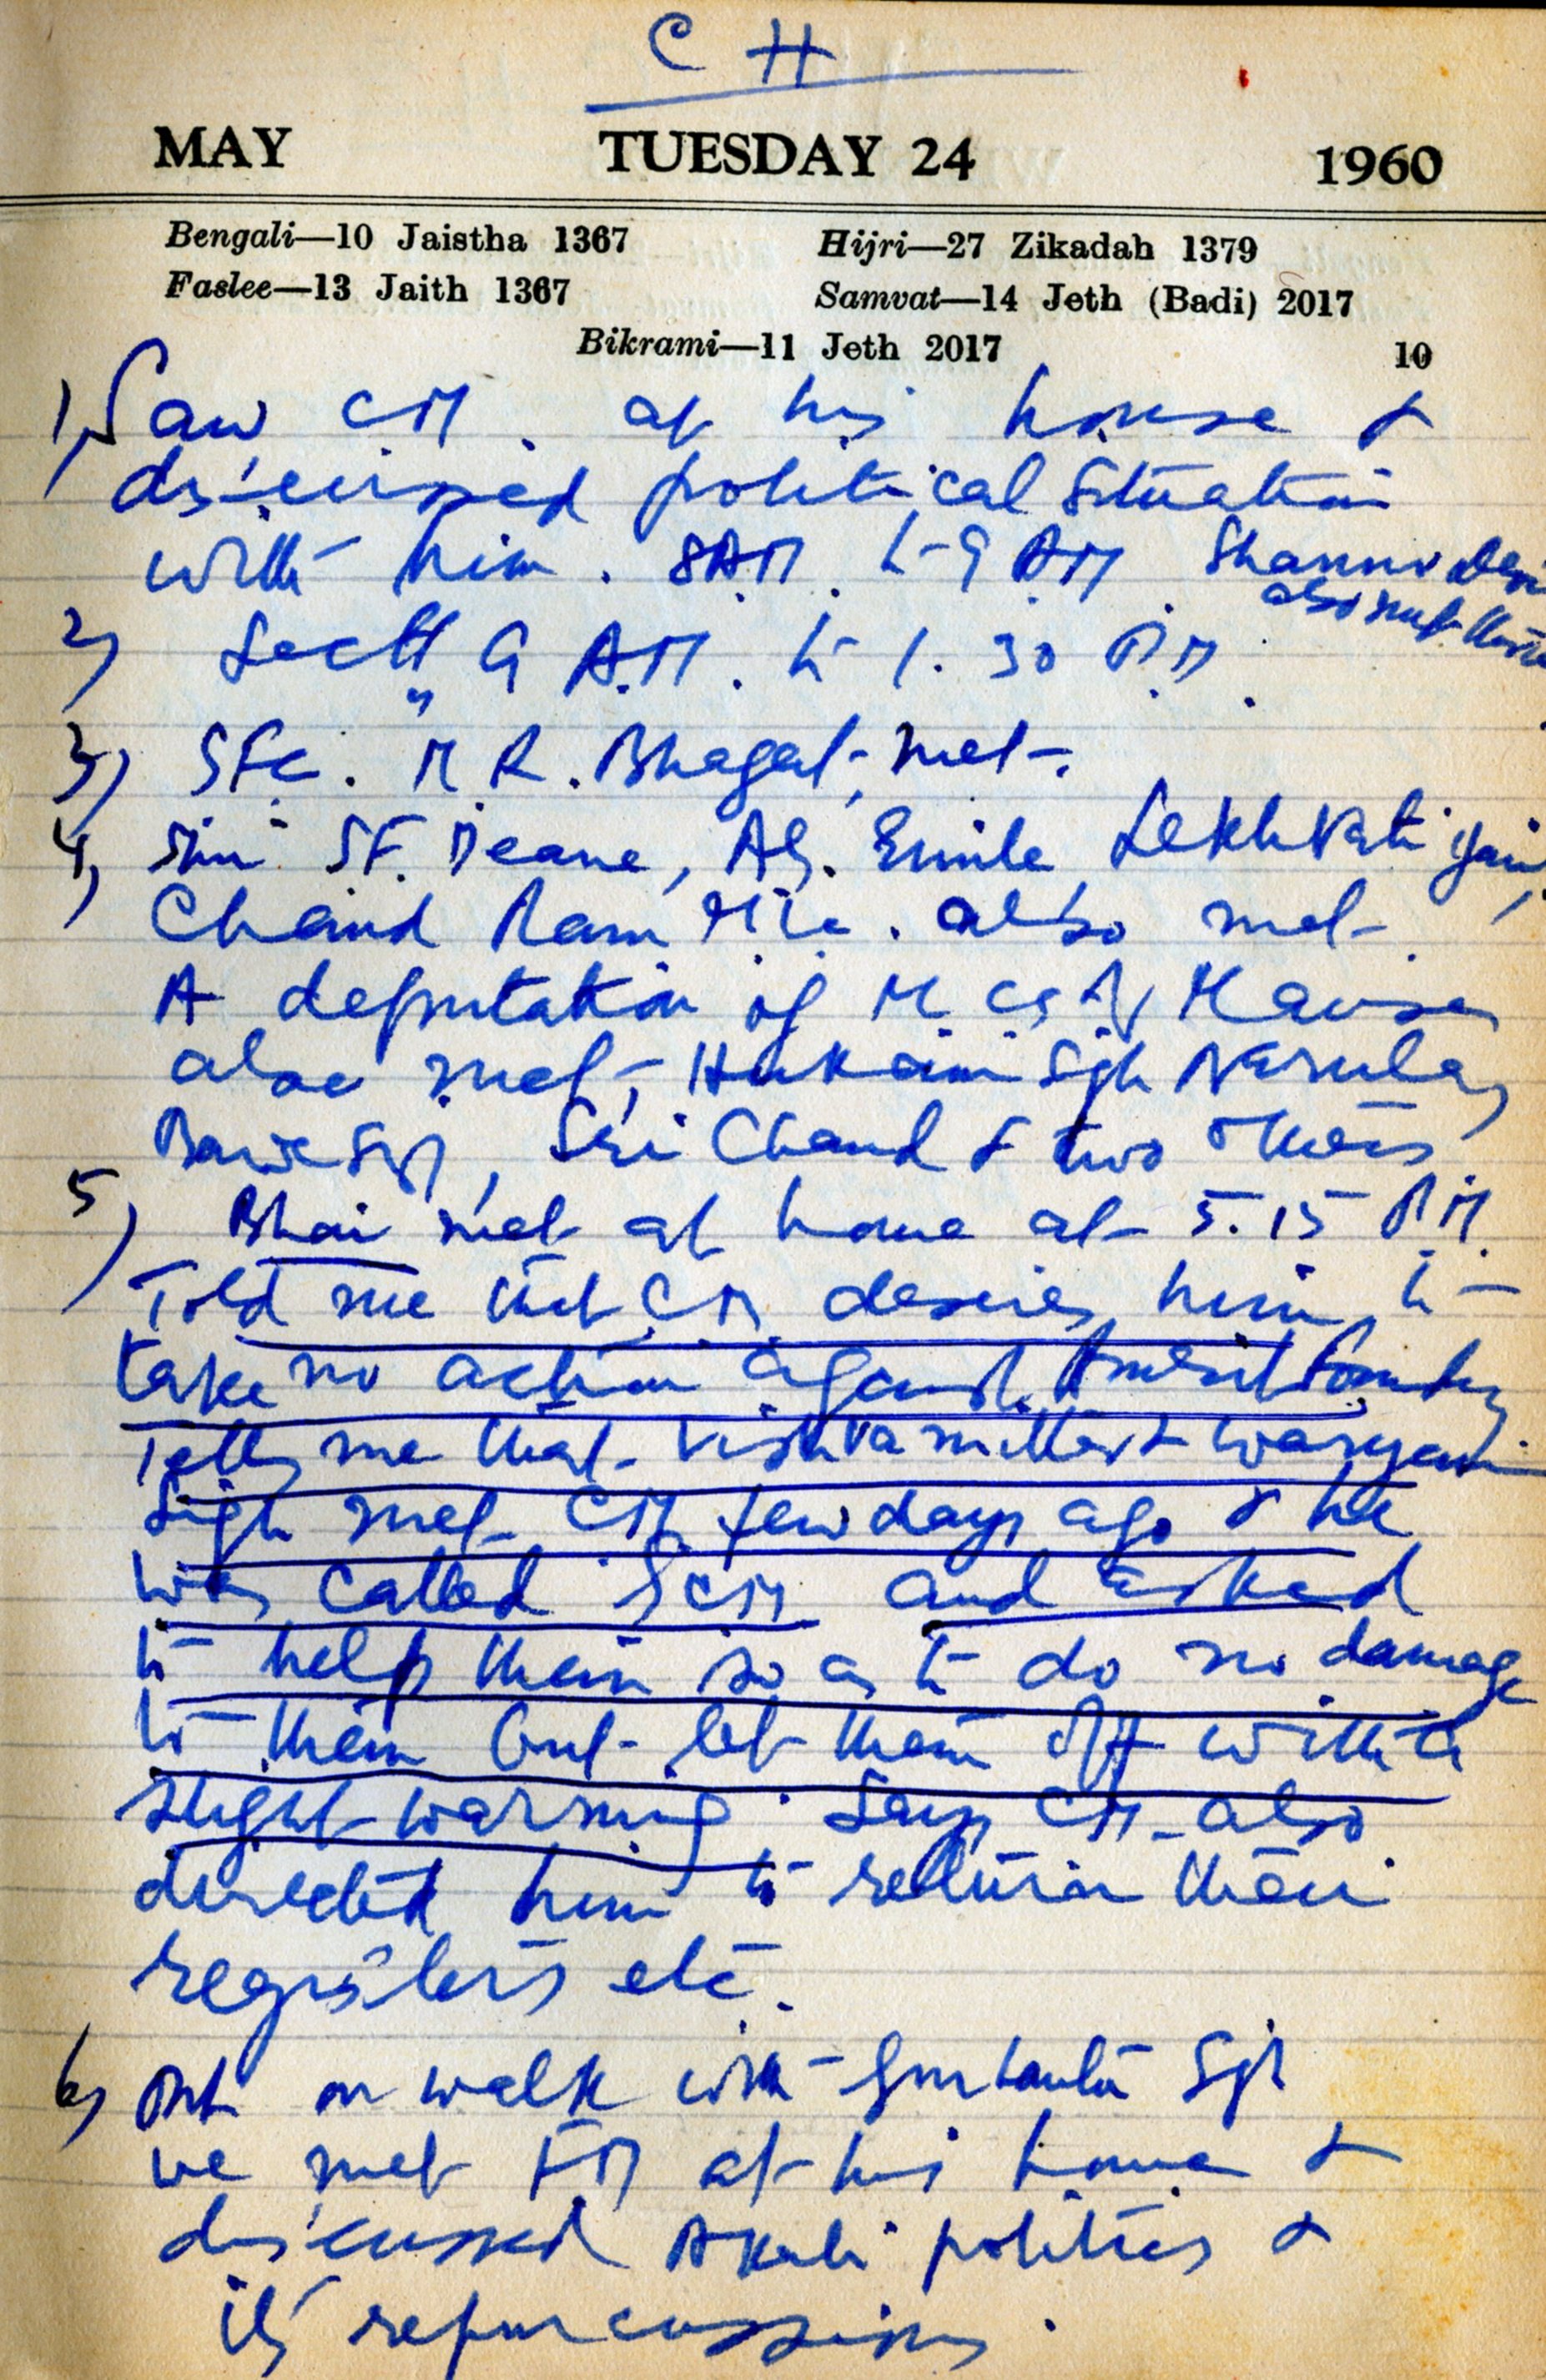 C H
MAY TUESDAY 24 1960
Bengali—10 Jaistha 1367 Hijri—27 Zikadah 1379
Faslee—13 Jaith 1367 Samvat—14 Jeth (Badi) 2017
Bikrami—11 Jeth 2017 10
1) Saw CM. at his house &
discussed political situation
with him. 8 AM. to 9 AM. Shanno Devi
also met there
2) Sectt 9 A.M. to 1.30 P.M.
3) M R. Bhagat met.
4) Shri S.F. Deane, AG. Lekhvati Jain,
Chand Ram also met.
A deputation of
also met, Hukam Sgh Narula,
Sri Chand & two others
5) Bhai met at home at 5.15 P.M.
Told me that CM desires him to
take no action against
Tells me that Vishvamitter & Waryam
Singh met CM few days ago & he
was called CM and asked
to help them so as to do no damage
to them but let them off with a
slight warning. Says CM also
directed him to return their
registers etc.
6) Out on walk with Gurbanta Sgh
we met FM at his house &
discussed Akali politics &
its repurcussions.